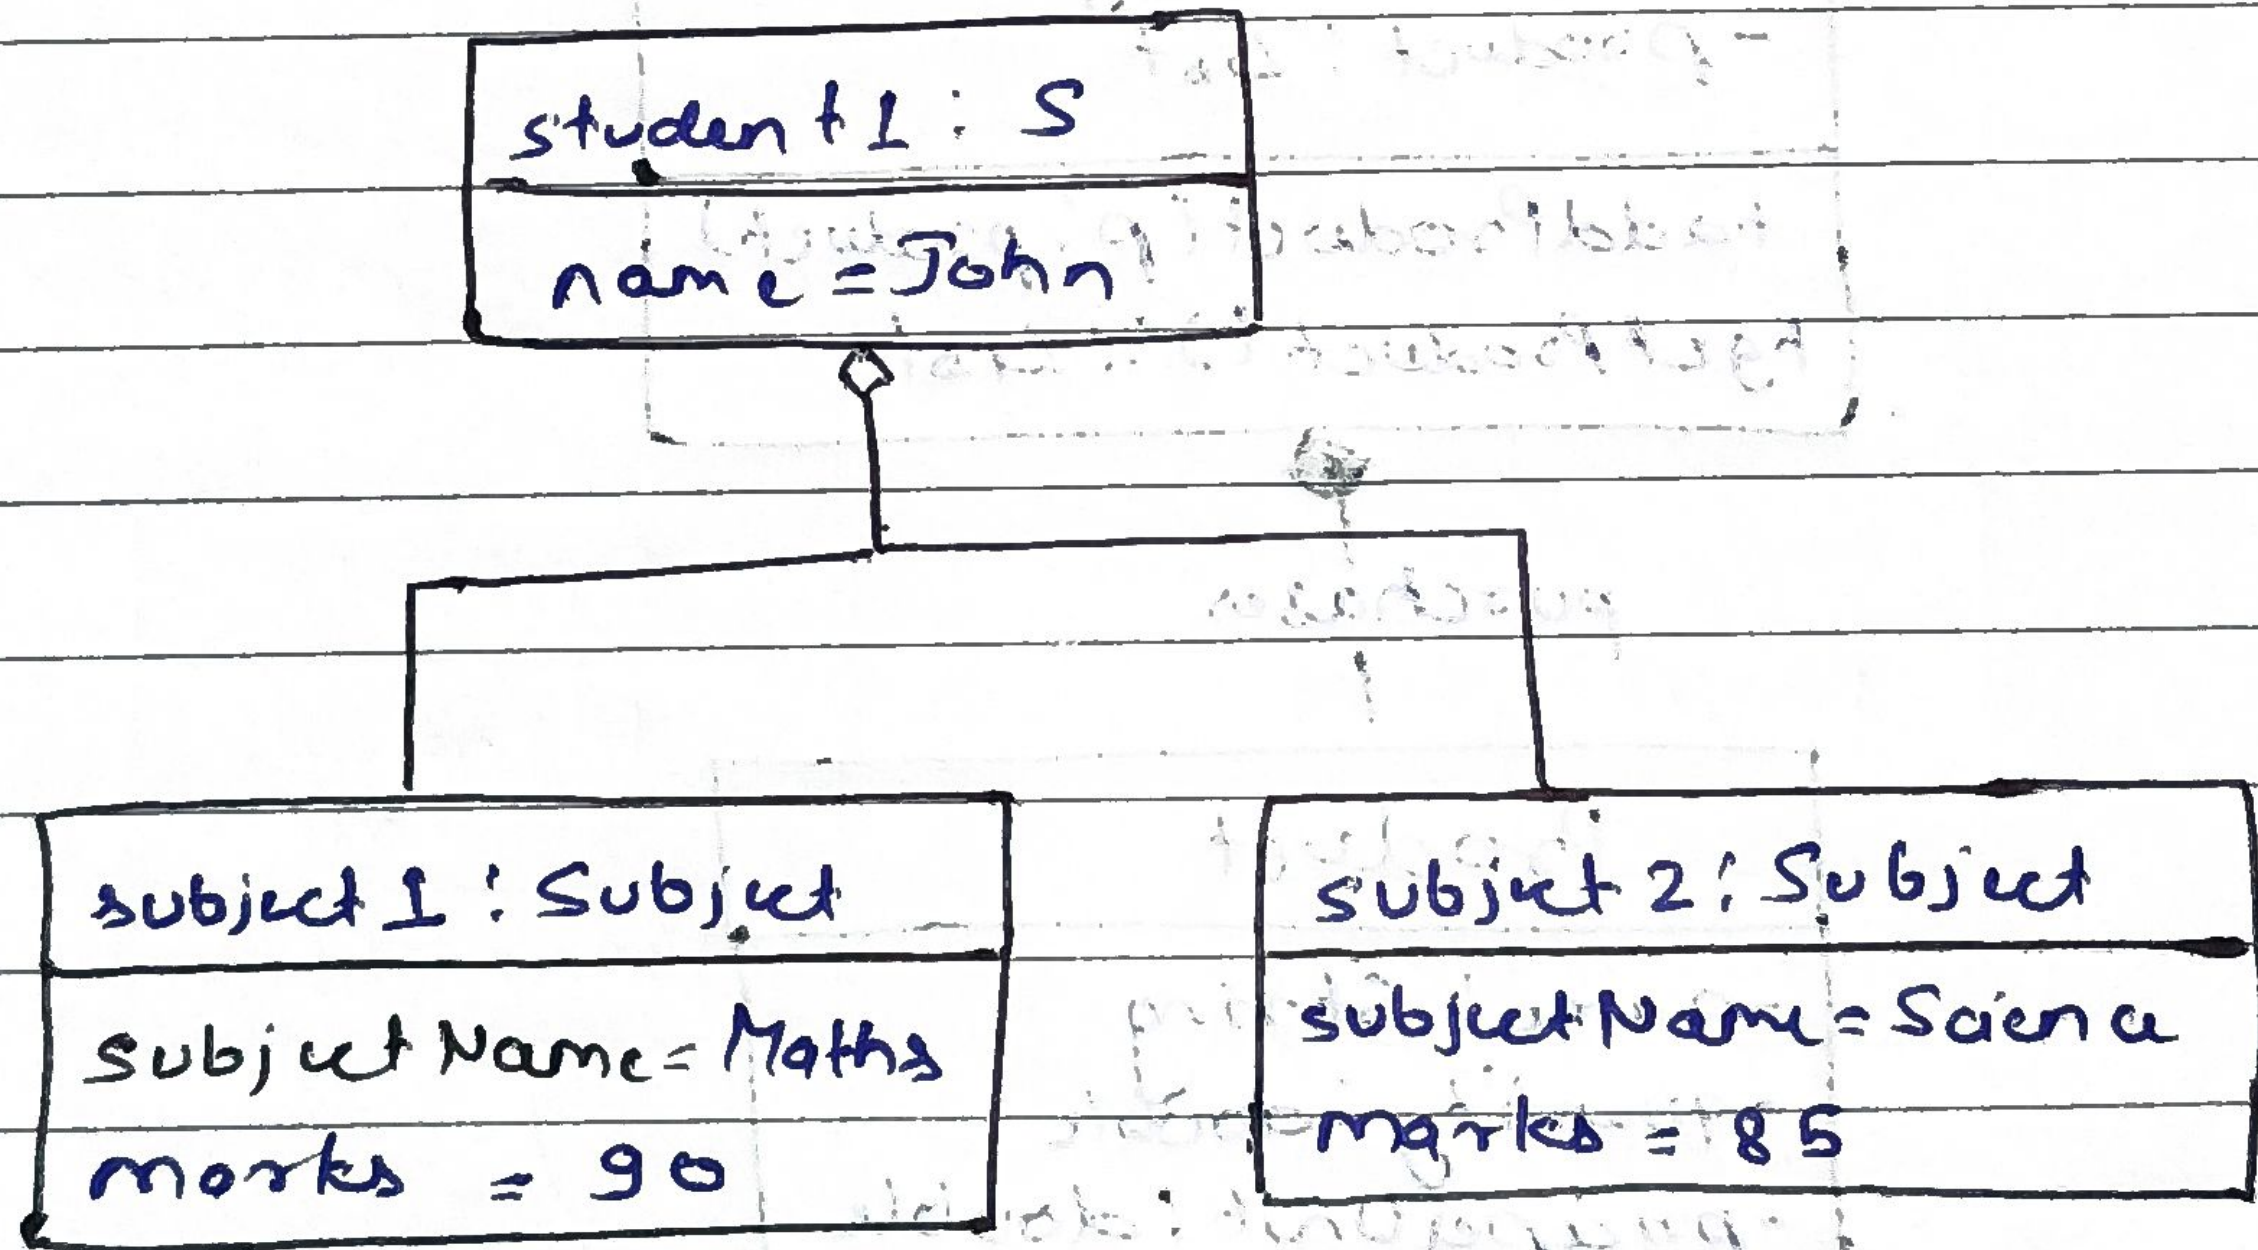 student1 : S
name = John
subject 1 : Subject
subjectName = Maths
marks = 90
subject 2 : Subject
subjectName = Science
marks = 85